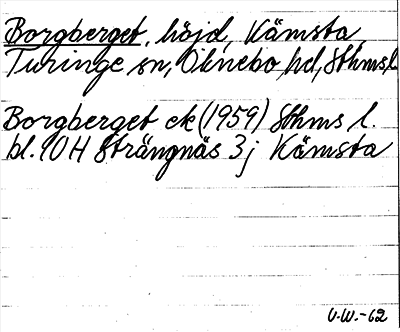 Borgberget, höjd, Kämsta,
Turinge sn, Öknebo hd, Sthms l.
Borgberget ek (1959) Sthms l.
bl. 10H Strängnäs 3j Kämsta
U.W.-62